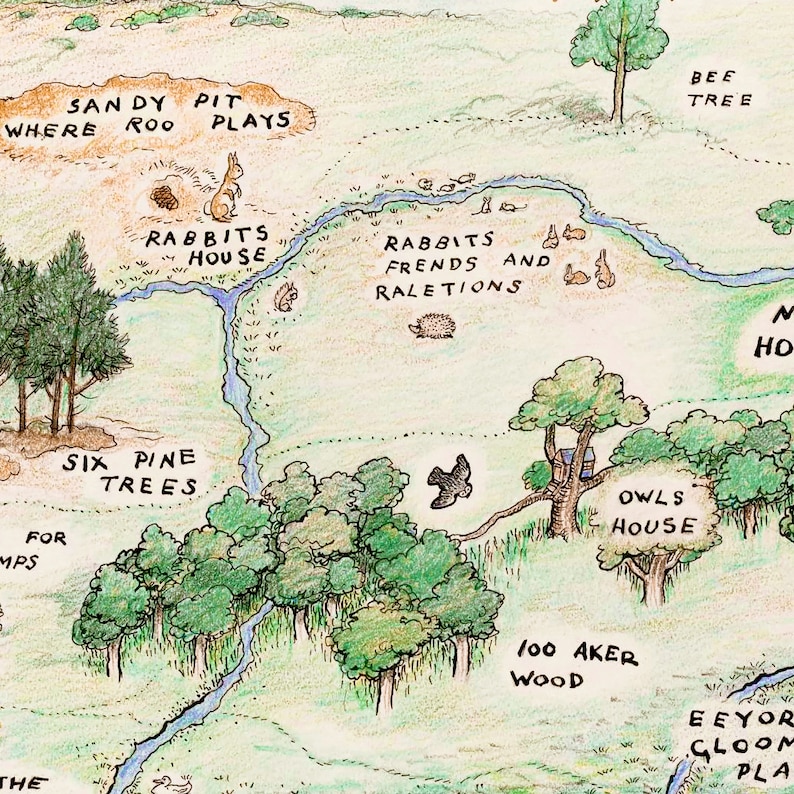 SANDY PIT
WHERE ROO PLAYS
BEE
TREE
RABBITS
HOUSE
RABBITS
FRENDS AND
RALETIONS
N
HO
SIX PINE
TREES
OWLS
HOUSE
FOR
MPS
100 AKER
WOOD
EEYOR
GLOOM
PLA
THE